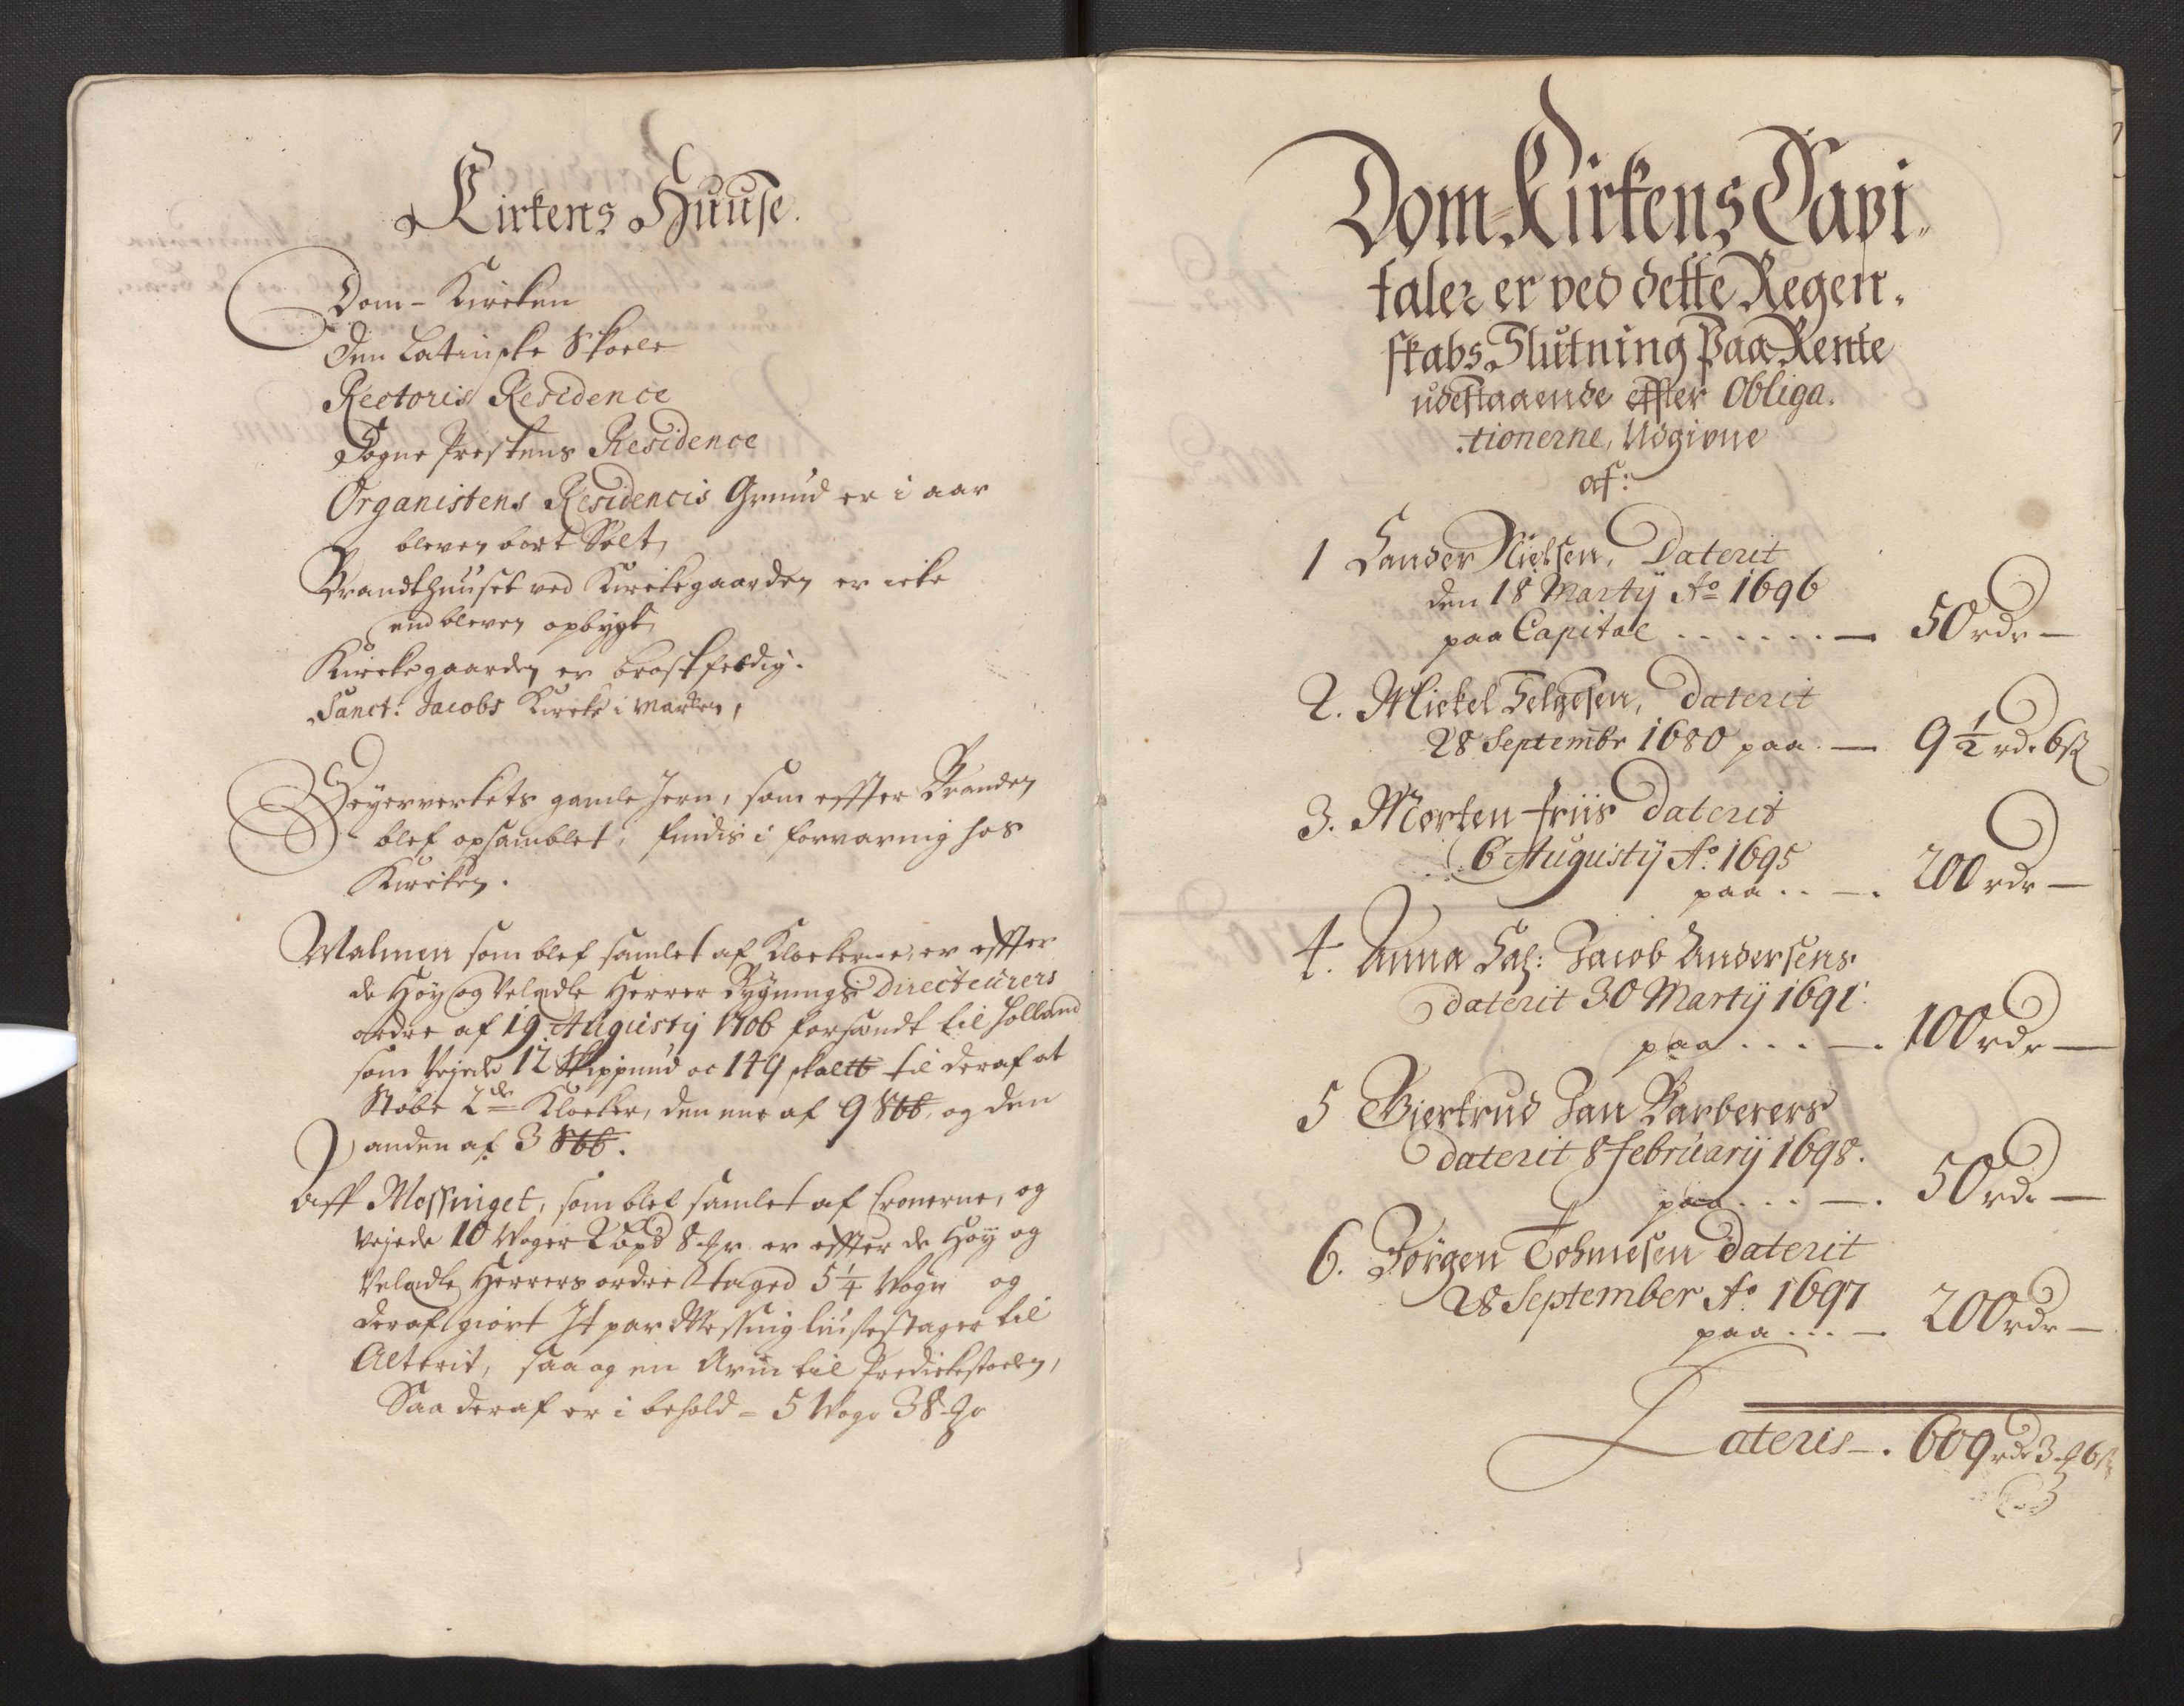 Kirkens Huuse.
Dom-Kircken
Den Latinske Skoele
Rectoris Residence
Sogne Prestens Residence
Organistens Residencis Grund er i aar
bleven bort Solt,
Brandthuuset ved Kirckegaarden er icke
end bleven opbygt,
Kirckegaarden er brøstfeldig.
Sanct: Jacobs Kircke i Marken,
Seyerverkets gamle Jern, som effter Branden
blef opsamblet, findis i forvarnig hos
Kircken.
Malmen som blef samlet af Klockerne, er effter
de Høy og Velædle Herrer Bygnings Directeurers
ordre af 19 Augustij 1706 forsændt til Holland
som Vejede 12 Skippund oc 149 skaltt til deraf at
Støbe 2de Klocker, den ene af 9 Stt, og den
anden af 3 Stt.
Aff Messinget, som blef samlet af Cronerne, og
vejede 10 Woger 2 Bpd 8 mr er effter de Høy og
Velædle Herrers ordre taged 5 1/4 Wogn og
deraf giort It par Messing liusestager til
Alterit, saa og en Arm til Predickestoelen,
Saa deraf er i behold = 5 Wogr 38 mr
Dom-Kirkens Capi.
taler er ved dette Regen.
skabs Slutning Paa Rente
udestaaende effter Obliga.
.tionerne, Udgivne
af:
1 Sander Nielsen, Daterit
den 18 Martij Ao 1696
paa Capital . . . . . . . — 50 rdr —
2. Mickel Helgesen, daterit
28 Septembr 1680 paa . — 9 1/2 rdr 6 ß
3. Morten Friis daterit
6 Augustij Ao. 1695
paa . . — . 200 rdr —
4. Anna Sal: Jacob Andersens
daterit 30 Martij 1691.
paa . . . — . 100 rdr —
5 Giertrud Jan Barberers
daterit 8 februarij 1698.
paa . . . — . 50 rdr —
6. Jörgen Tohmesen daterit
28 September Ao. 1697
paa . . . — 200 rdr —
Lateris — . 609 rdr 3 m 6 ß